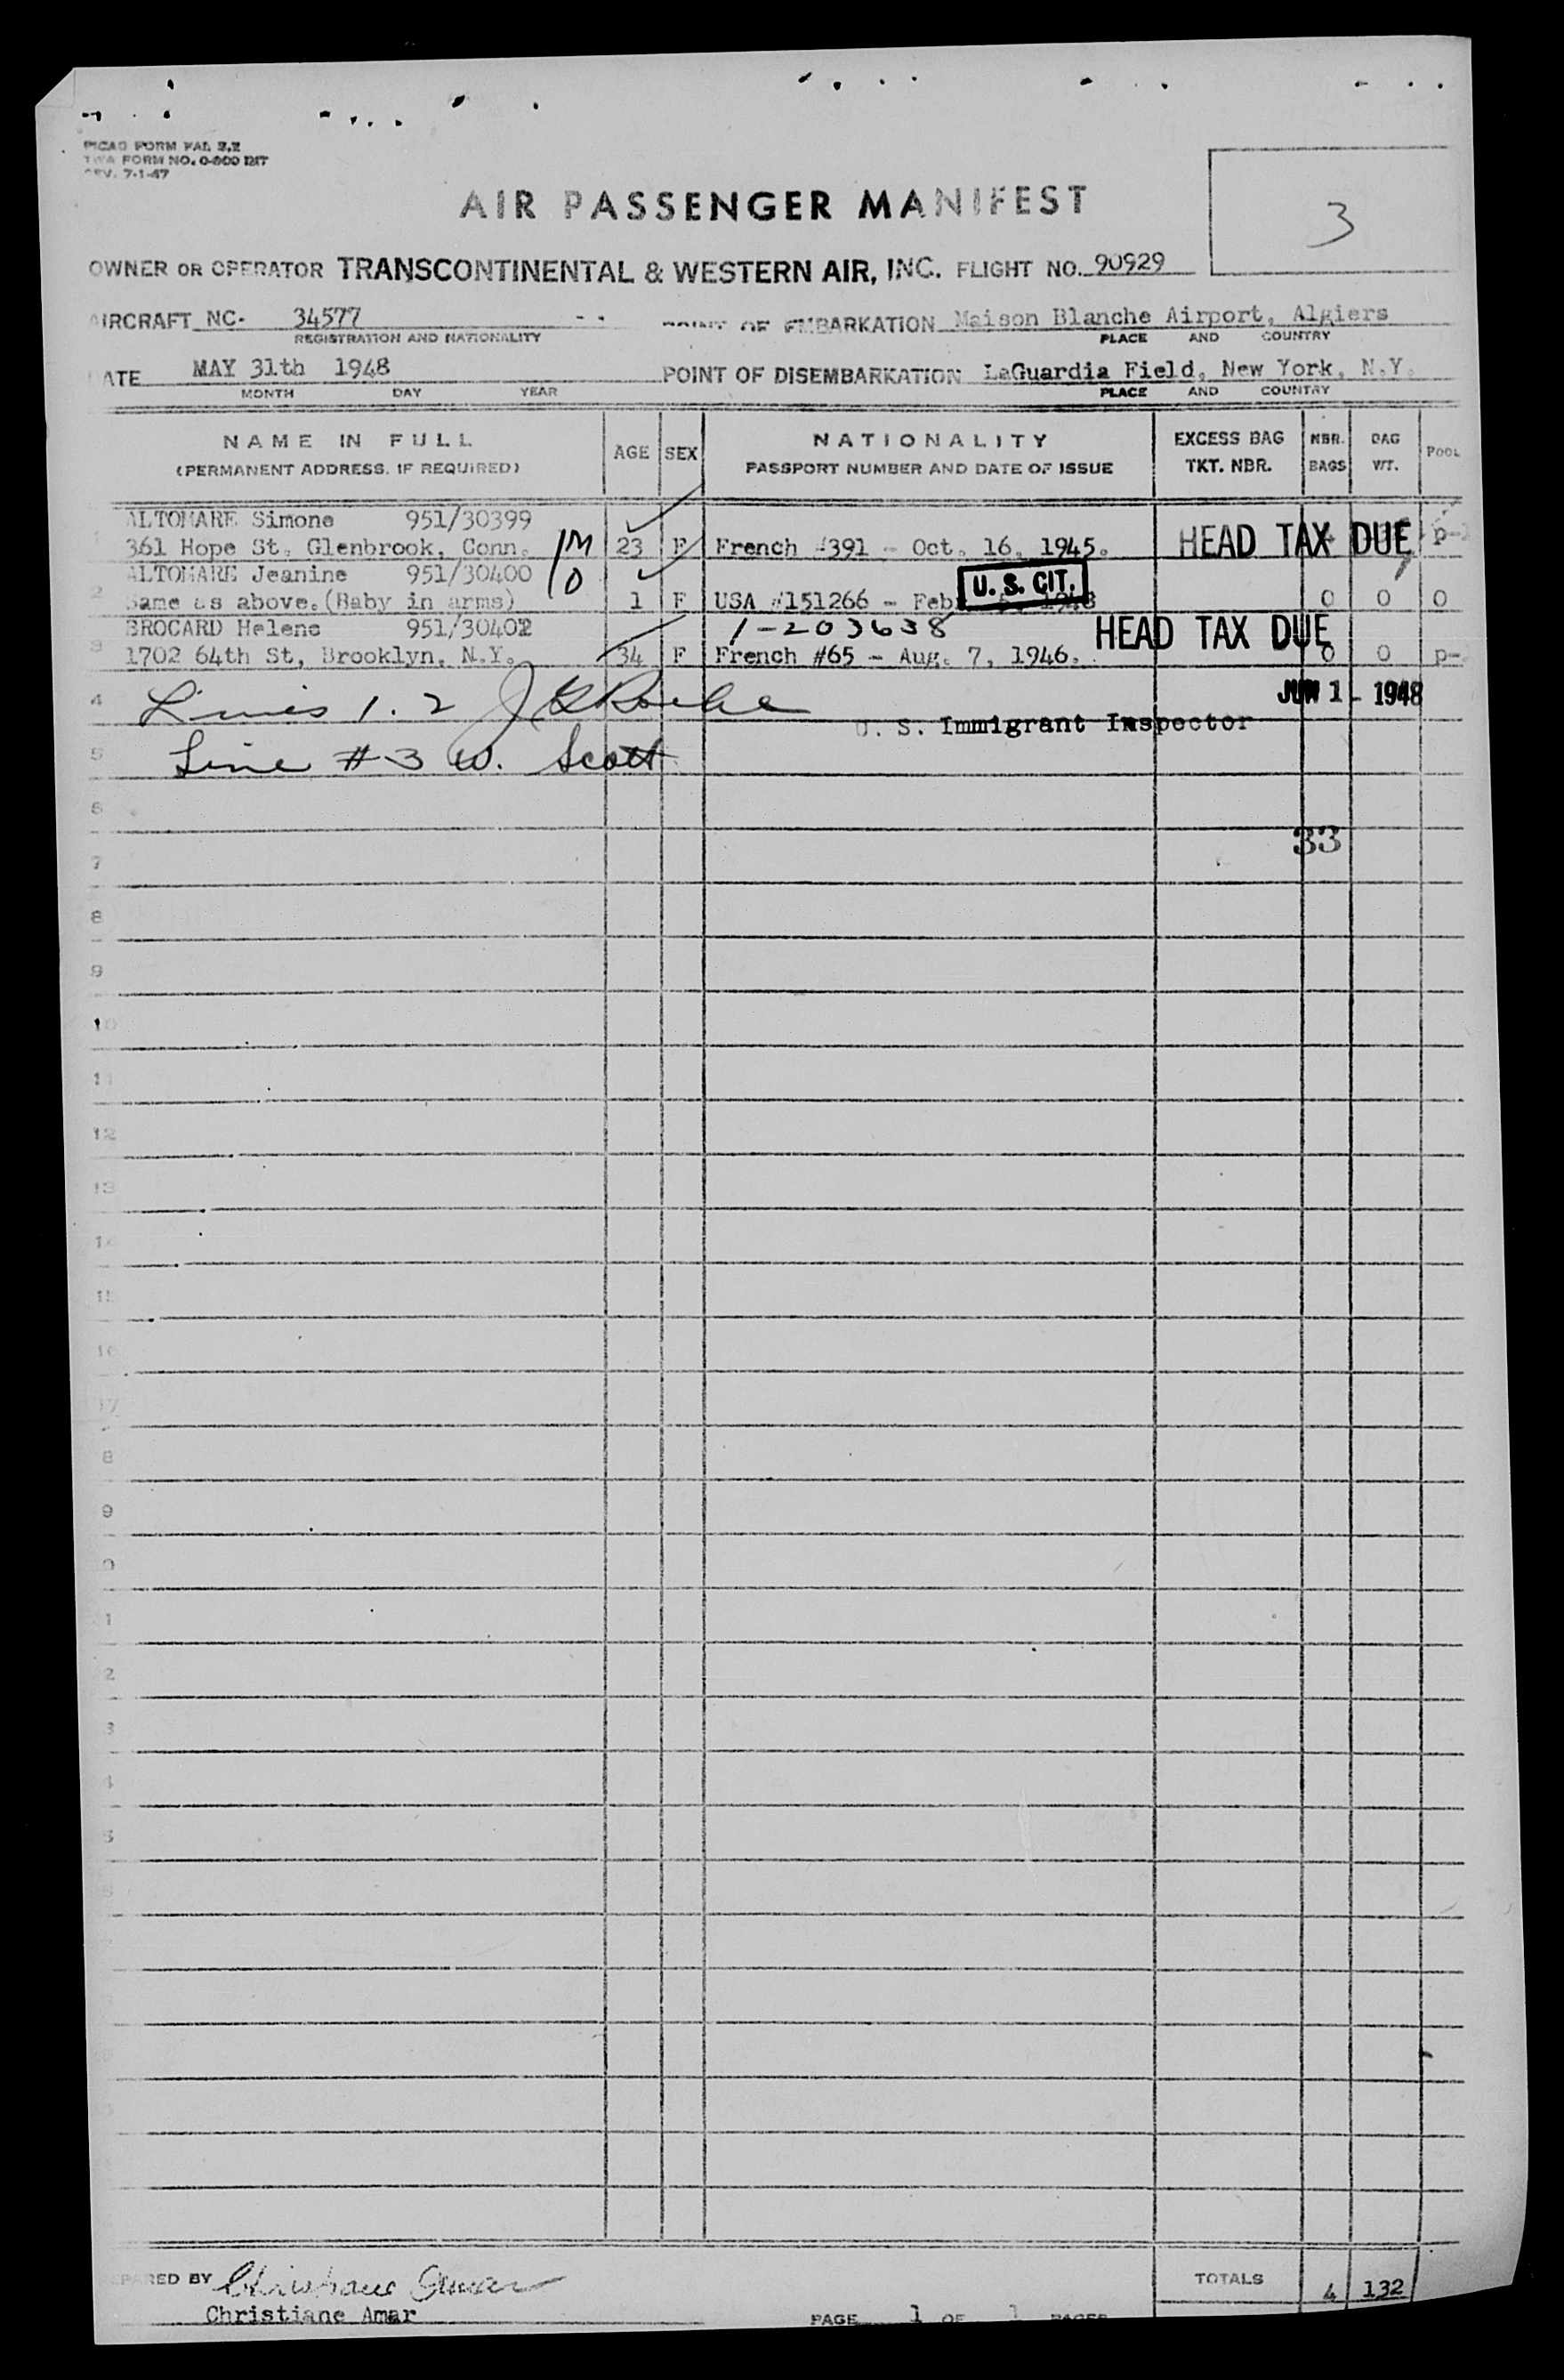 PICAO FORM PAL 3.2
TWA FORM NO. O-800 INT
REV. 7-1-47
AIR PASSENGER MANIFEST
3
OWNER OR OPERATOR TRANSCONTINENTAL & WESTERN AIR, INC. FLIGHT NO. 90929
AIRCRAFT NC- 34577 POINT OF EMBARKATION Maison Blanche Airport, Algiers
REGISTRATION AND NATIONALITY PLACE AND COUNTRY
DATE MAY 31th 1948 POINT OF DISEMBARKATION LaGuardia Field, New York, N.Y.
MONTH DAY YEAR PLACE AND COUNTRY
NAME IN FULL AGE SEX NATIONALITY EXCESS BAG NBR. BAG POOL
(PERMANENT ADDRESS, IF REQUIRED) PASSPORT NUMBER AND DATE OF ISSUE TKT. NBR. BAGS WT.
ALTOMARE Simone 951/30399
361 Hope St, Glenbrook, Conn. 1M 23 F French #391 - Oct. 16, 1945. HEAD TAX DUE p-
ALTOMARE Jeanine 951/30400 10 U. S. CIT.
2 Same as above.(Baby in arms) 1 F USA #151266 - Feb. 1948 0 0 0
BROCARD Helene 951/30402 1-203638 HEAD TAX DUE
3 1702 64th St, Brooklyn, N.Y. 34 F French #65 - Aug. 7, 1946. 0 0 p-
4 Lines 1. 2 JUN 1 - 1948
U. S. Immigrant Inspector
5 Line #3 W. Scott
6
33
7
8
9
10
11
12
13
14
15
16
17
8
9
0
1
2
3
4
5
PREPARED BY Christiane Amar TOTALS 4 132
Christiane Amar PAGE 1 OF 1 PAGES